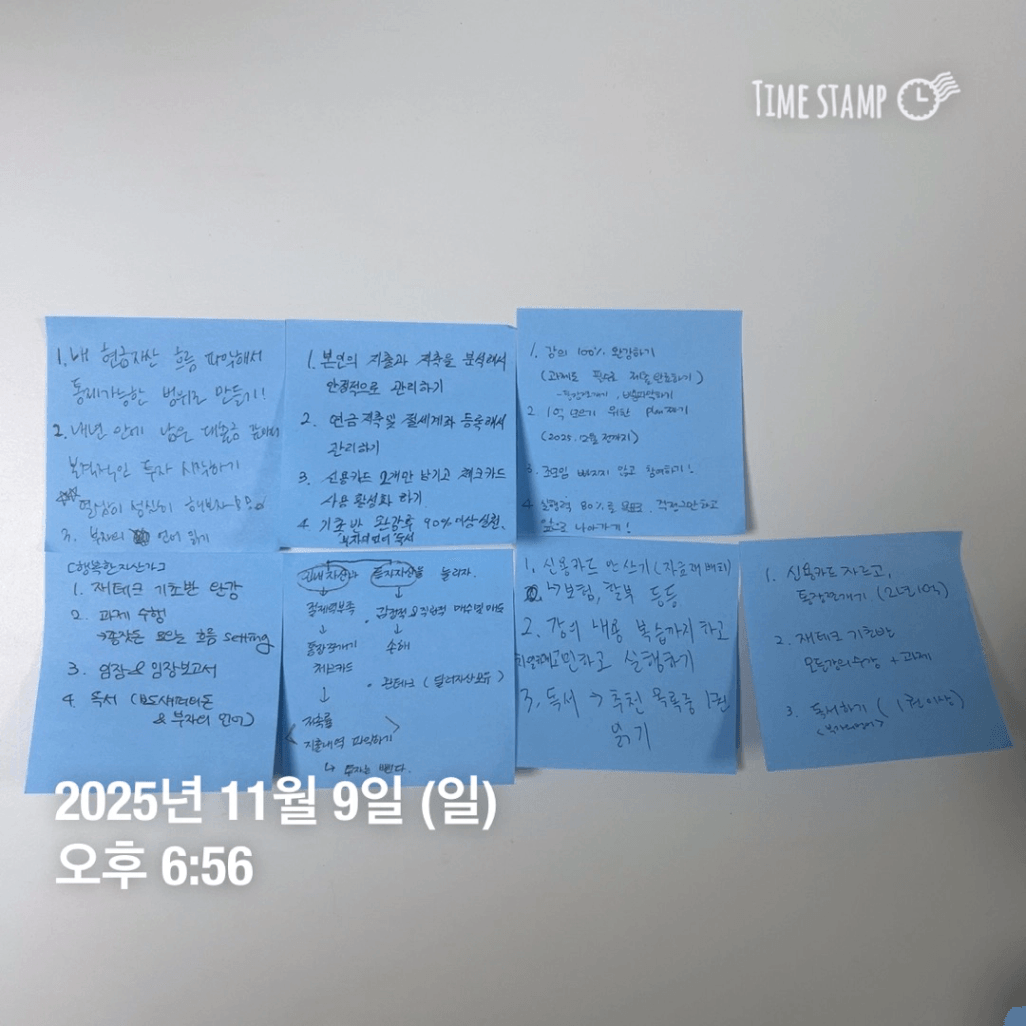 TIME STAMP
1. 내 현금자산 흐름 파악해서
통제가능한 범위로 만들기!!
2. 내년 안에 남은 대출금
본격적인 투자 시작하기
열심히 성실히 해보자
3. 부자의 언어 읽기
1. 본인의 지출과 저축을 분석해서
안정적으로 관리하기
2. 연금저축및 절세계좌 등록해서
관리하기
3. 신용카드 2개만 남기고 체크카드
사용 활성화 하기
4 기초반 완강률 90% 이상 실천,
부자의언어 독서
1. 강의 100% 완강하기
(과제도 필수로 제출완료하기)
- 통장쪼개기,
2 1억 모으기 위한 plan 짜기
(2025. 12월 전까지)
3. 조모임 빠지지 않고 참여하기!
4. 실행력 80%로 걱정그만하고
앞으로 나아가기!
[행복한자산가]
1. 재테크 기초반 완강
2. 과제 수행
→종잣돈 모으는 흐름 setting
3. 임장 & 임장보고서
4. 독서 (
& 부자의 언어)
투자자산을 늘리자.
절제력부족
↓
통장쪼개기
체크카드
↓
저축률
지출내역 파악하기
↳ 투자는 빠르다.
감정적 & 직관적 매수및매도
↓
손해
폰테크 (달러자산보유)
1. 신용카드 안쓰기 (자료재배피
↳보험, 할부 등등
2. 강의 내용 복습까지 하고
고민하고 실행하기
3. 독서 → 추천 목록중 1권
읽기
1. 신용카드 자르고,
통장쪼개기 (2년1억)
2. 재테크 기초반
모든강의수강 + 과제
3. 독서하기 (1권이상)
2025년 11월 9일 (일)
오후 6:56